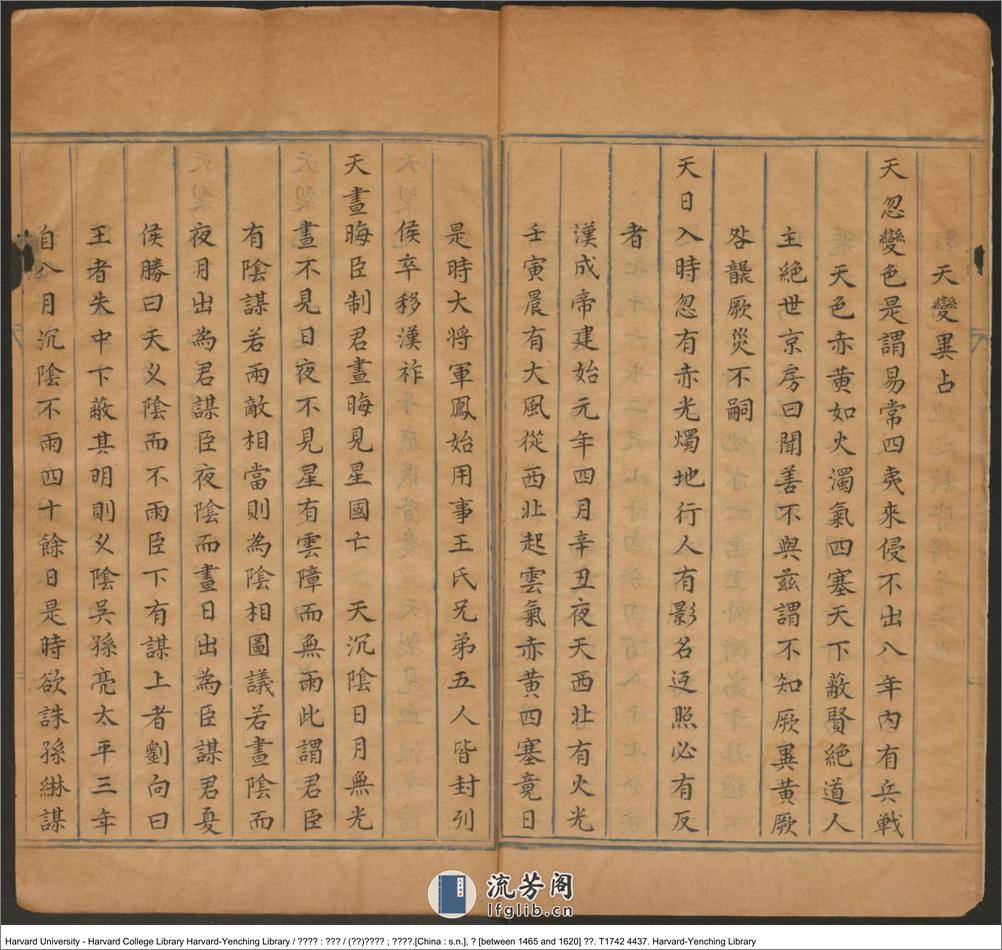 天變異占
天忽變色是謂易常四夷來侵不出八年內有兵戰
天色赤黃如火濁氣四塞天下蔽賢絕道人
主絕世京房曰聞善不與茲謂不知厥異黃厥
咎聾厥災不嗣
天日入時忽有赤光燭地行人有影名逥照必有反
者
漢成帝建始元年四月辛丑夜天西北有火光
壬寅晨有大風從西北起雲氣赤黃四塞竟日
是時大將軍鳳始用事王氏兄弟五人皆封列
侯卒移漢祚
天晝晦臣制君晝晦見星國亡　天沉陰日月無光
晝不見日夜不見星有雲障而無雨此謂君臣
有陰謀若兩敵相當則為陰相圖議若晝陰而
夜月出為君謀臣夜陰而晝日出為臣謀君夏
侯勝曰天久陰而不雨臣下有謀上者劉向曰
王者失中下蔽其明則久陰吳孫亮太平三年
自八月沉陰不雨四十餘日是時欲誅孫綝謀
流芳阁
lfglib.cn
Harvard University - Harvard College Library Harvard-Yenching Library / ???? : ??? / (??)???? ; ????.[China : s.n.], ? [between 1465 and 1620] ??. T1742 4437. Harvard-Yenching Library